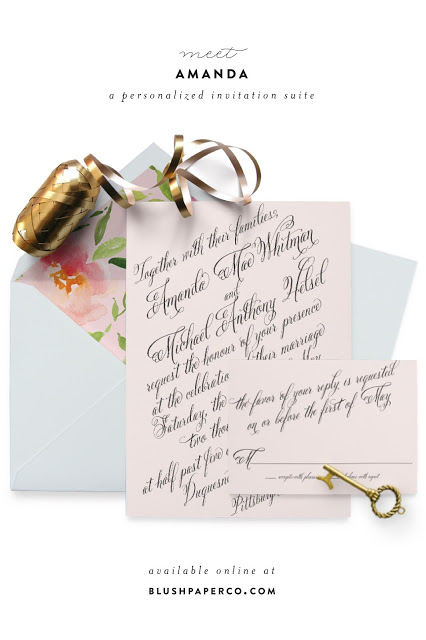 meet
AMANDA
a personalized invitation suite
Together with their families,
Amanda Mae Whitman
and
Michael Anthony Helsel
request the honour of your presence
at the celebration their marriage
Saturday, the May
two thou
at half past five
Duquesne
Pittsburgh
the favor of your reply is requested
on or before the first of May
M
accepts with pleasure declines with regret
available online at
BLUSHPAPERCO.COM